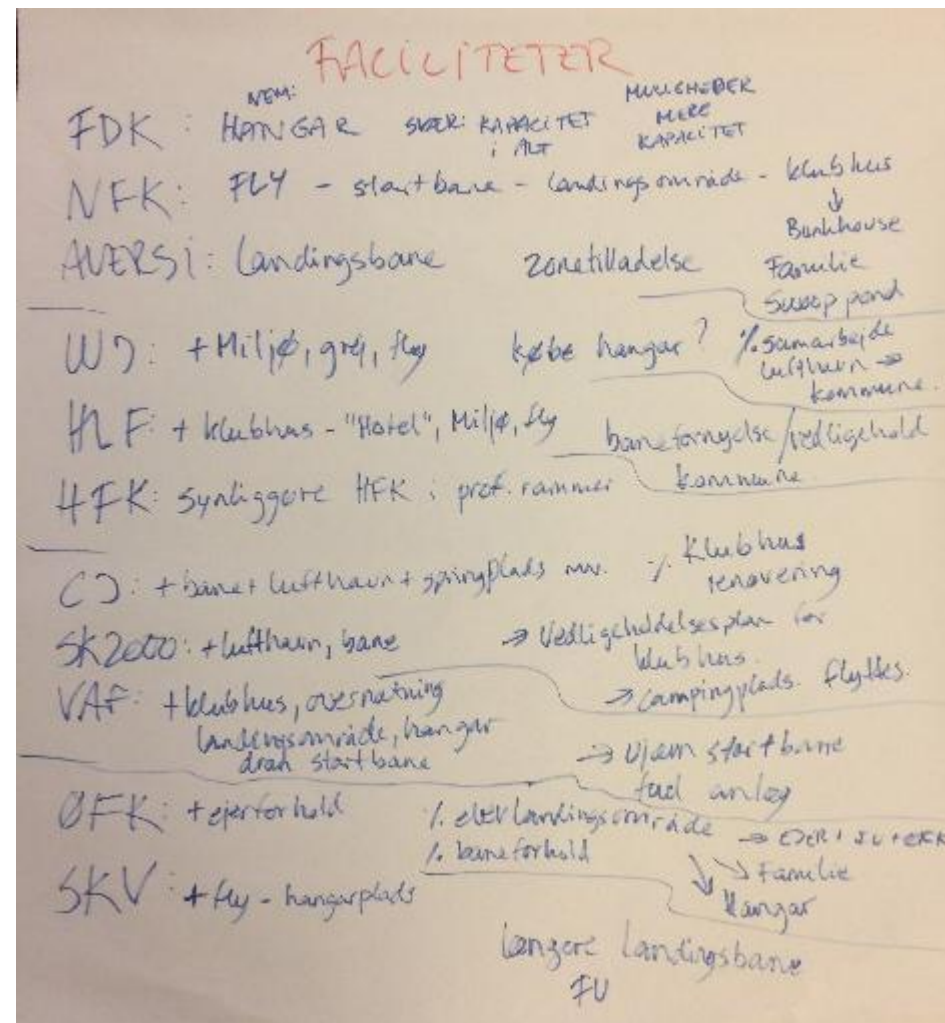 FACILITETER
FDK: NEM: HANGAR SVÆR: KAPACITET i ALT MULIGHEDER MERE KAPACITET
NFK: FLY - startbane - landingsområde - klubhus
↓
Bunkhouse
AVERSI: Landingsbane zonetilladelse Familie
Swoop pond
WJ: + Miljø, grej, fly købe hangar? ٪ samarbejde
lufthavn →
kommune.
HLF: + klubhus - "Hotel", Miljø, fly banefornyelse/vedligehold
kommune
HFK: synliggøre HFK i prof. rammer
CJ: + bane + lufthavn + springplads mv. ٪ Klubhus
renovering
SK2000: + lufthavn, bane → Vedligeholdelsesplan for
klubhus.
→ Campingplads flyttes.
VAF: + klubhus, overnatning
landingsområde, hangar
startbane
→ Ujævn startbane
anlæg
ØFK: + ejerforhold ٪ landingsområde →
٪ baneforhold
→ Familie
SKV: + fly - hangarplads Hangar
længere landingsbane
FU